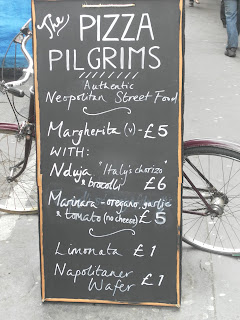 The PIZZA
PILGRIMS
Authentic
Neopolitan Street Food
Margherita (v) - £5
WITH:
Nduja "Italy's chorizo"
& brocolli £6
Marinara - oregano, garlic
& tomato (no cheese) £5
Limonata £1
Napolitaner £1
Wafer